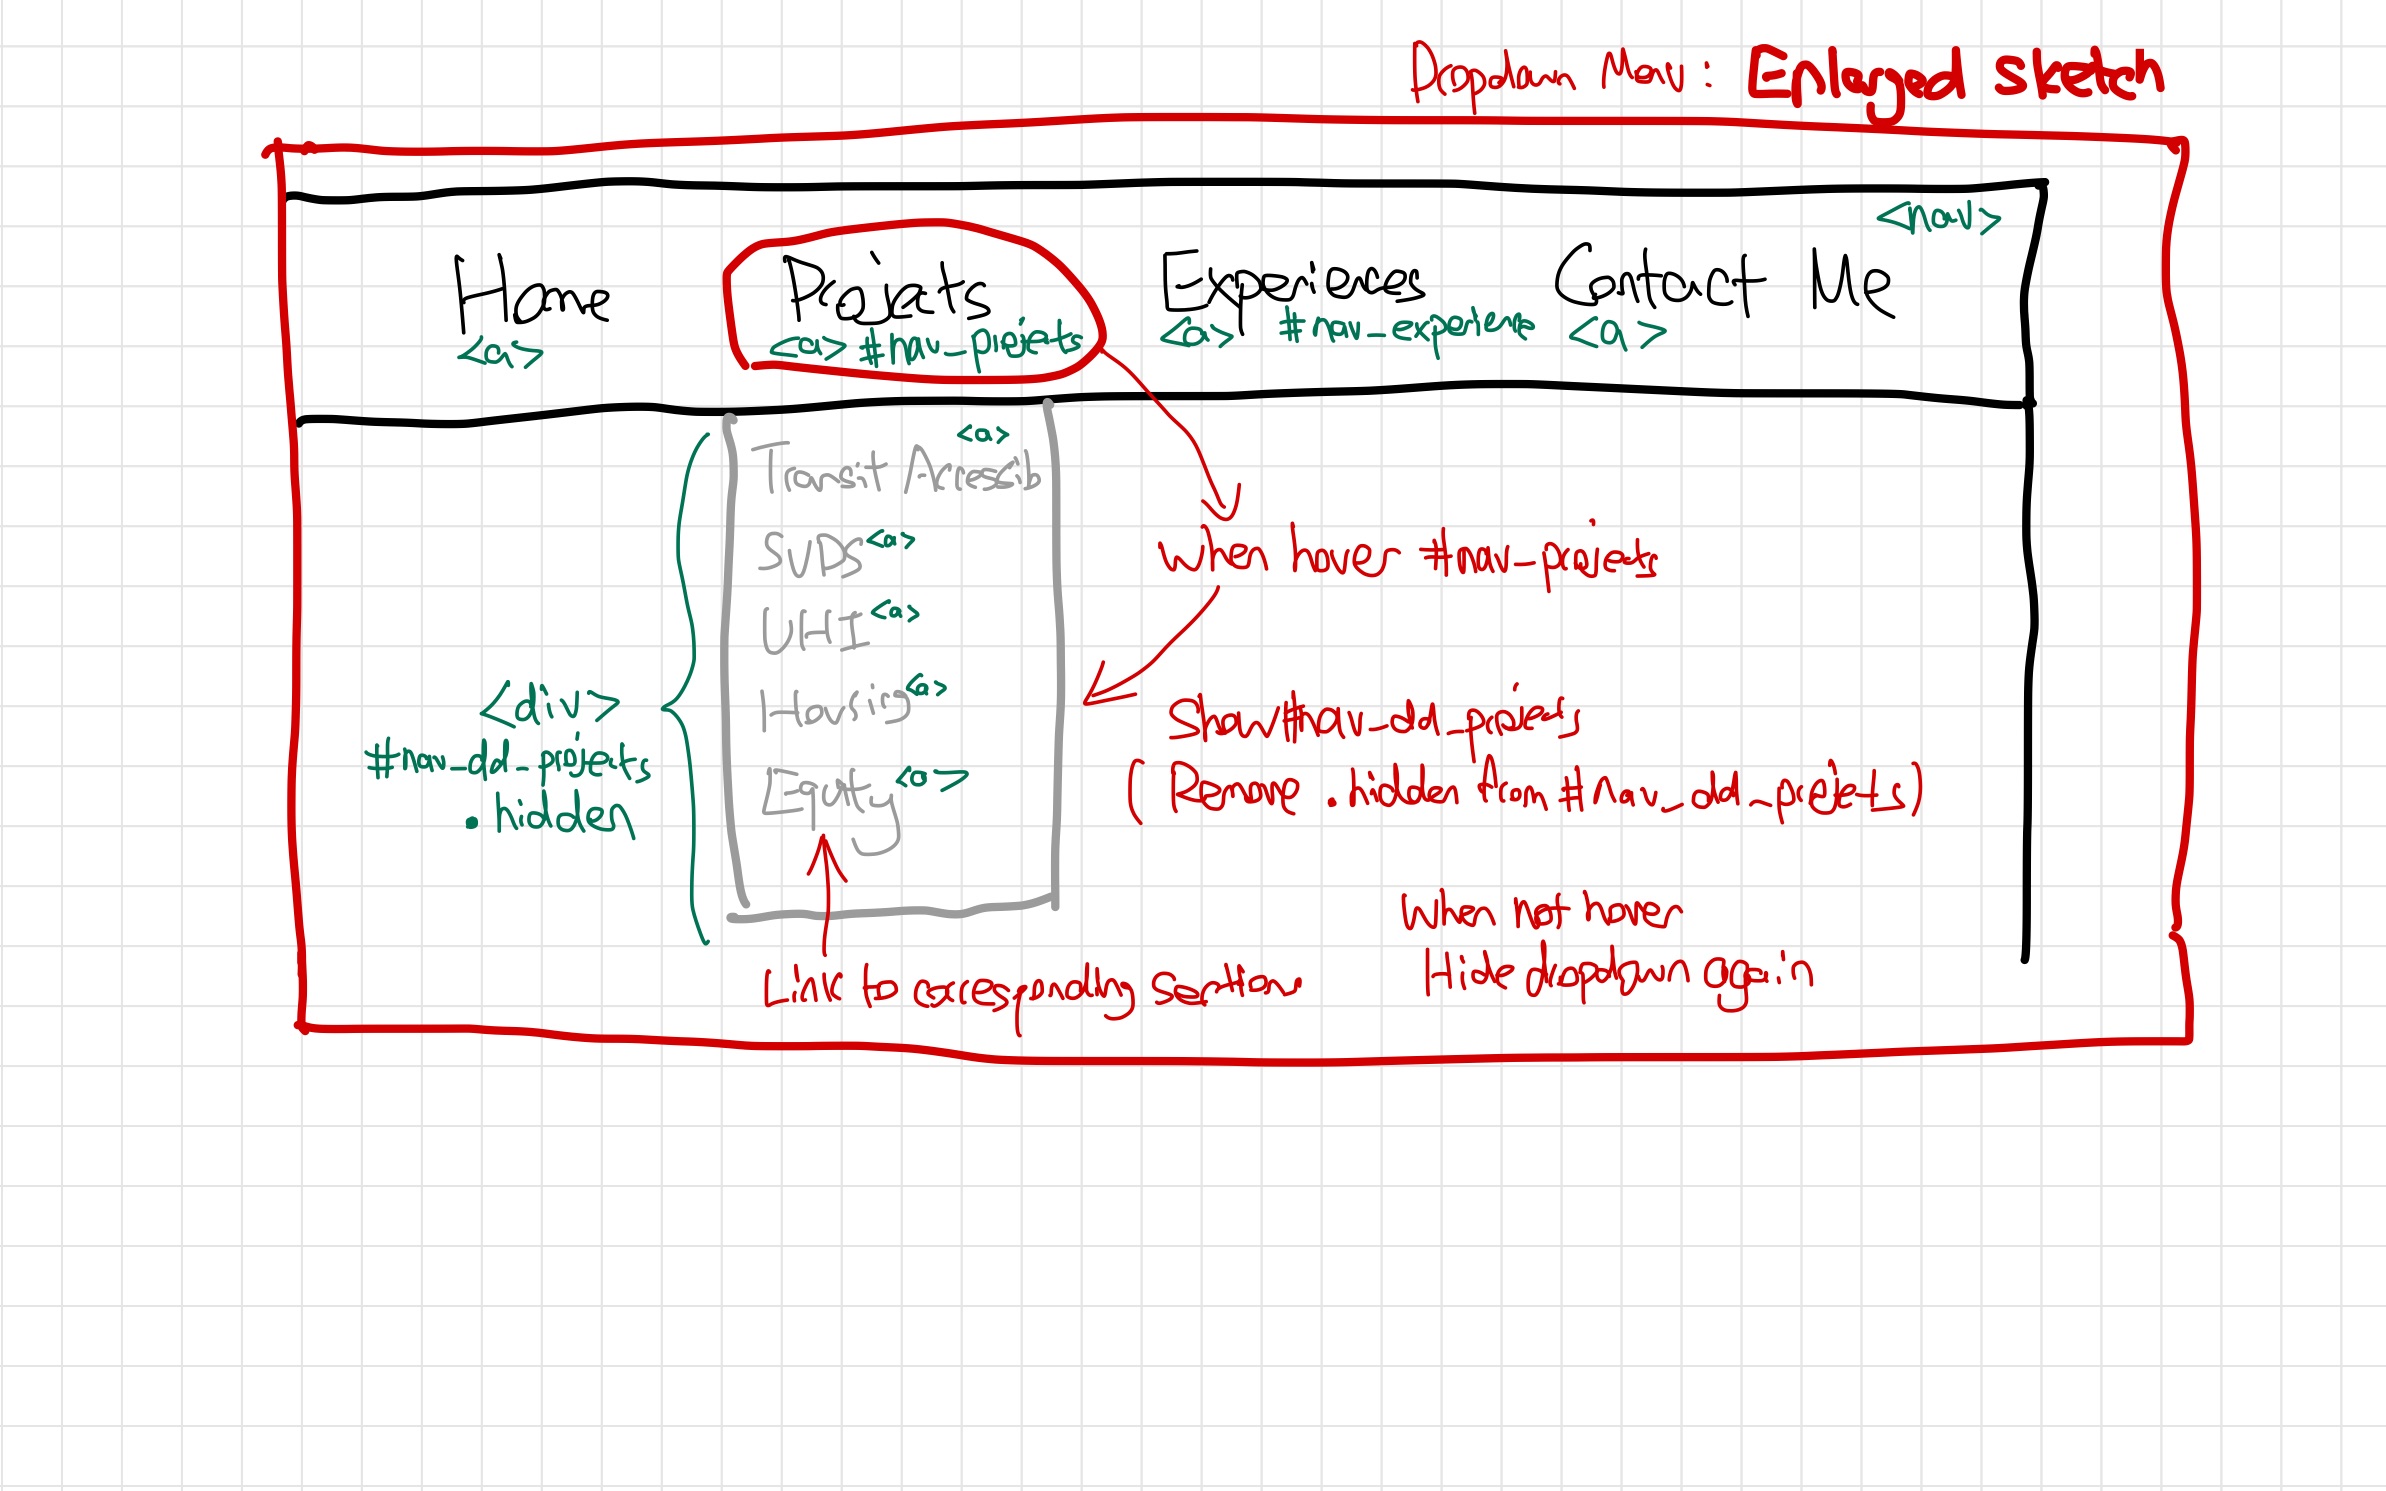 Dropdown Menu: Enlarged sketch
<nav>
Home Projects Experiences Contact Me
<a> <a> #nav_projects <a> #nav_experience <a>
<a>
Transit Accessib
SVDS <a>
UHI <a>
Housing <a>
Equity <a>
<div>
#nav_dd_projects
.hidden
When hover #nav_projects
Show #nav_dd_projects
(Remove .hidden from #nav_dd_projects)
When not hover
Hide dropdown again
Link to corresponding section